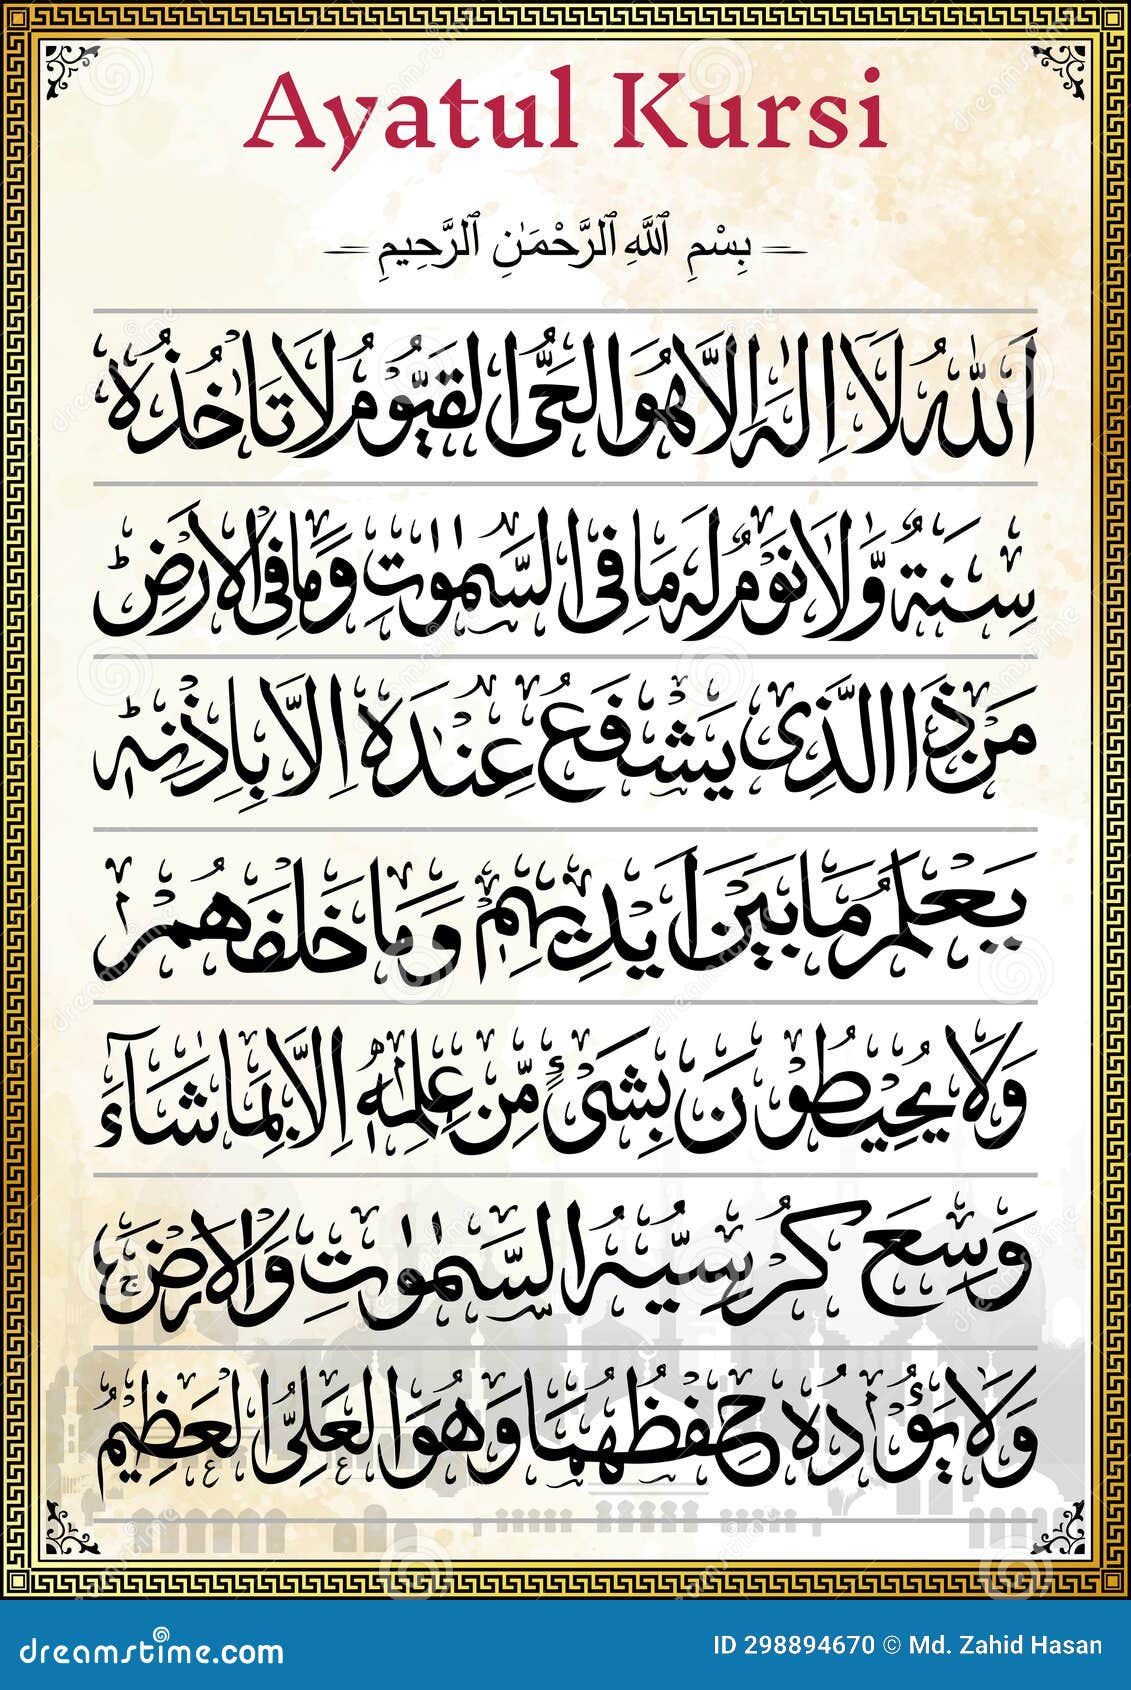 Ayatul Kursi
بِسْمِ ٱللَّهِ ٱلرَّحْمَـٰنِ ٱلرَّحِيمِ
اَللّٰهُ لَاۤ اِلٰهَ اِلَّا هُوَ الْحَیُّ الْقَیُّوْمُ لَا تَاْخُذُهٗ
سِنَةٌ وَّلَا نَوْمٌ لَهٗ مَا فِی السَّمٰوٰتِ وَمَا فِی الْاَرْضِ ط
مَنْ ذَا الَّذِیْ یَشْفَعُ عِنْدَهٗۤ اِلَّا بِاِذْنِهٖ ط
یَعْلَمُ مَا بَیْنَ اَیْدِیْهِمْ وَمَا خَلْفَهُمْ
وَلَا یُحِیْطُوْنَ بِشَیْءٍ مِّنْ عِلْمِهٖۤ اِلَّا بِمَا شَآءَ
وَسِعَ كُرْسِیُّهُ السَّمٰوٰتِ وَالْاَرْضَ ج
وَلَا یَؤُدُهٗ حِفْظُهُمَا وَهُوَ الْعَلِیُّ الْعَظِیْمُ
dreamstime.com
ID 298894670 © Md. Zahid Hasan